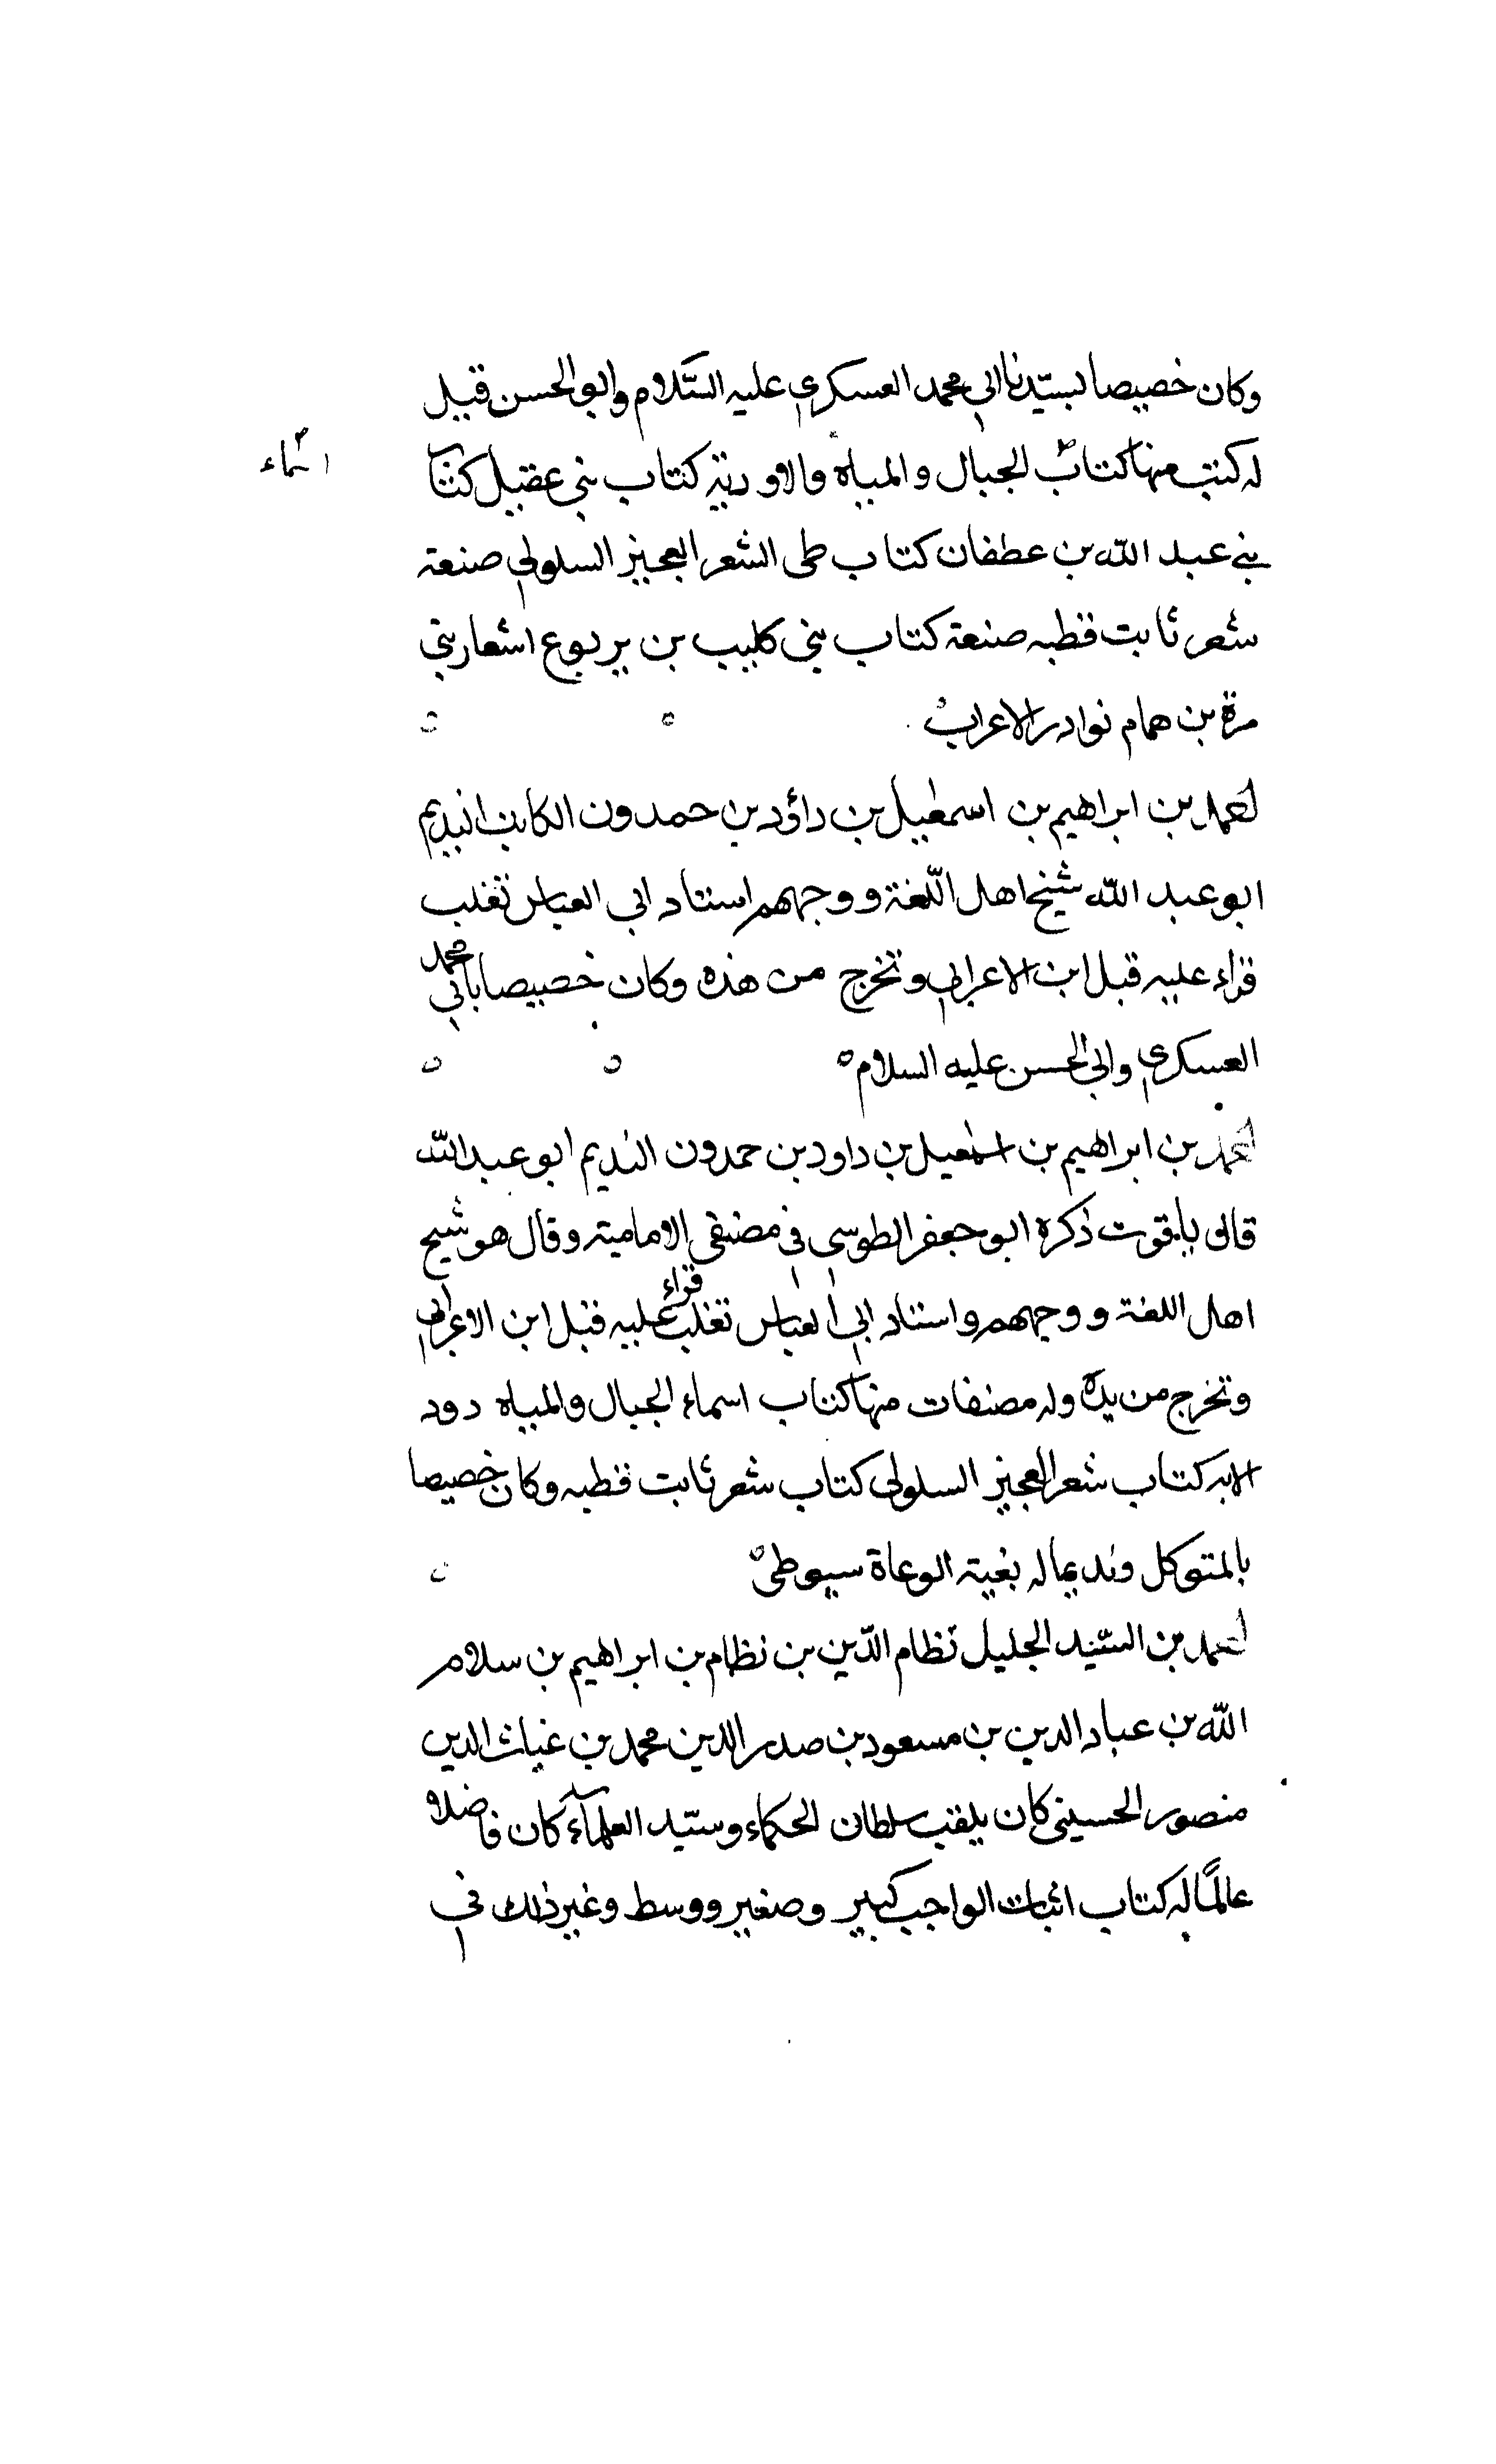 وكان خصيصا بسيّدنا ابي محمد العسكري عليه السّلام وابو الحسن قبيل
له كتب منها كتاب الجبال والمياه والاودية كتاب بني عقيل كتاب
اسماء
بني عبد الله بن عطفان كتاب طى الشعر العجيز السلولي صنعة
شعر ثابت قطبه صنعة كتاب بني كليب بن يربوع اشعار بني
مرة بن همام نوادر الاعراب
احمد بن ابراهيم بن اسمعيل بن داؤد بن حمدون الكاتب النديم
ابو عبد الله شيخ اهل اللّغة ووجههم استاد ابي العباس تغلب
قراء عليه قبل ابن الاعرابي وتخرج من هذه وكان خصيصا بابي محمد
العسكري وابي الحسن عليه السلام
احمد بن ابراهيم بن اسمعيل بن داود بن حمدون النديم ابو عبد الله
قال ياقوت ذكره ابو جعفر الطوسي في مصنفي الامامية وقال هو شيخ
اهل اللغة ووجههم واستاد ابي العباس تغلب قراء عليه قبل ابن الاعرابي
وتخرج من يده وله مصنفات منها كتاب اسماء الجبال والمياه دود
الابه كتاب شعر العجيز السلولي كتاب شعر ثابت قطبه وكان خصيصا
بالمتوكل ونديما له بغية الوعاة سيوطي
احمد بن السّيد الجليل نظام الدّين بن نظام بن ابراهيم بن سلام
الله بن عباد الدين بن مسعود بن صدر الدين محمد بن غياث الدين
منصور الحسيني كان يلقب سلطان الحكماء وسيّد العلمآء كان فاضلا
عالمًا له كتاب اثبات الواجب كبير وصغير ووسط وغير ذلك في